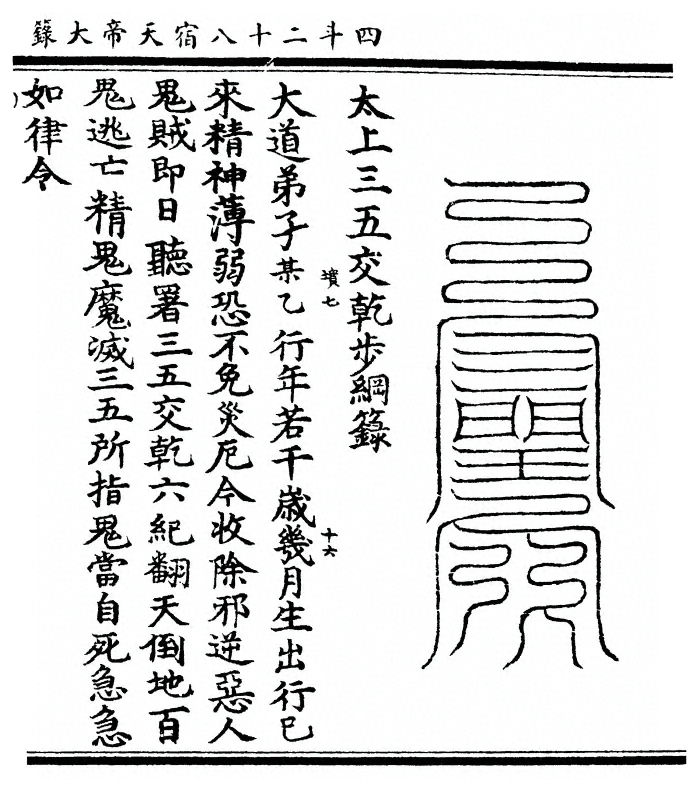 四斗二十八宿天帝大籙
太上三五交乾步綱籙
墳七
十六
大道弟子某乙行年若干歲幾月生出行已
來精神薄弱恐不免災厄今收除邪逆惡人
鬼賊即日聽署三五交乾六紀翻天倒地百
鬼逃亡精鬼魔滅三五所指鬼當自死急急
如律令